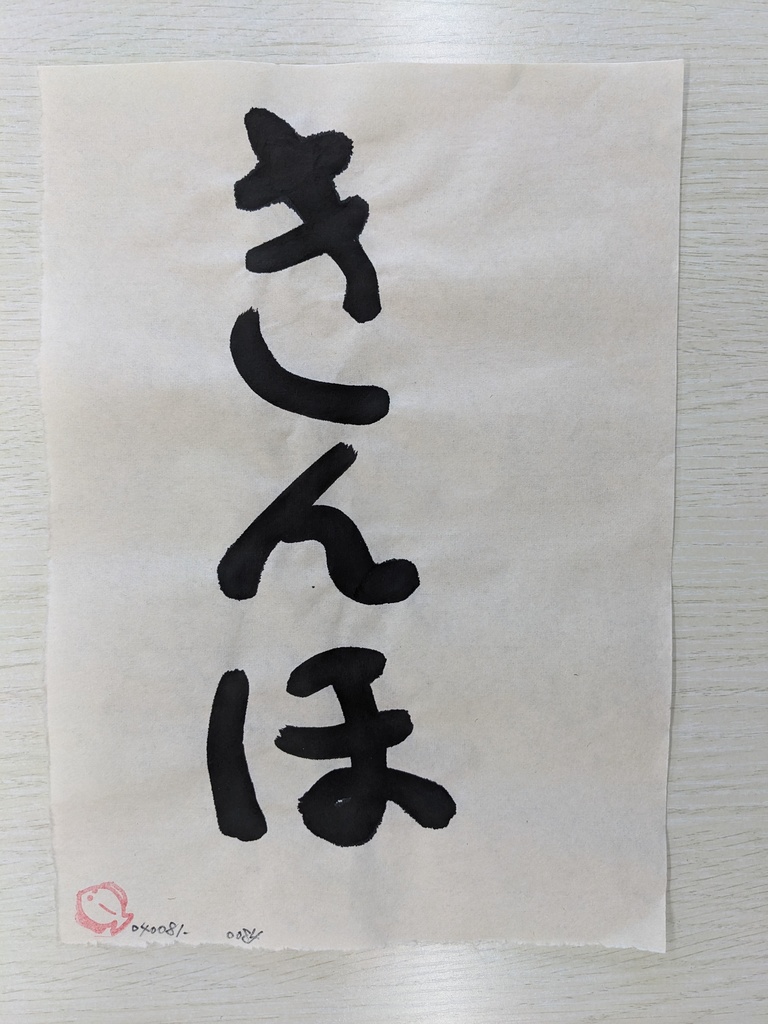 きんほ
040081-